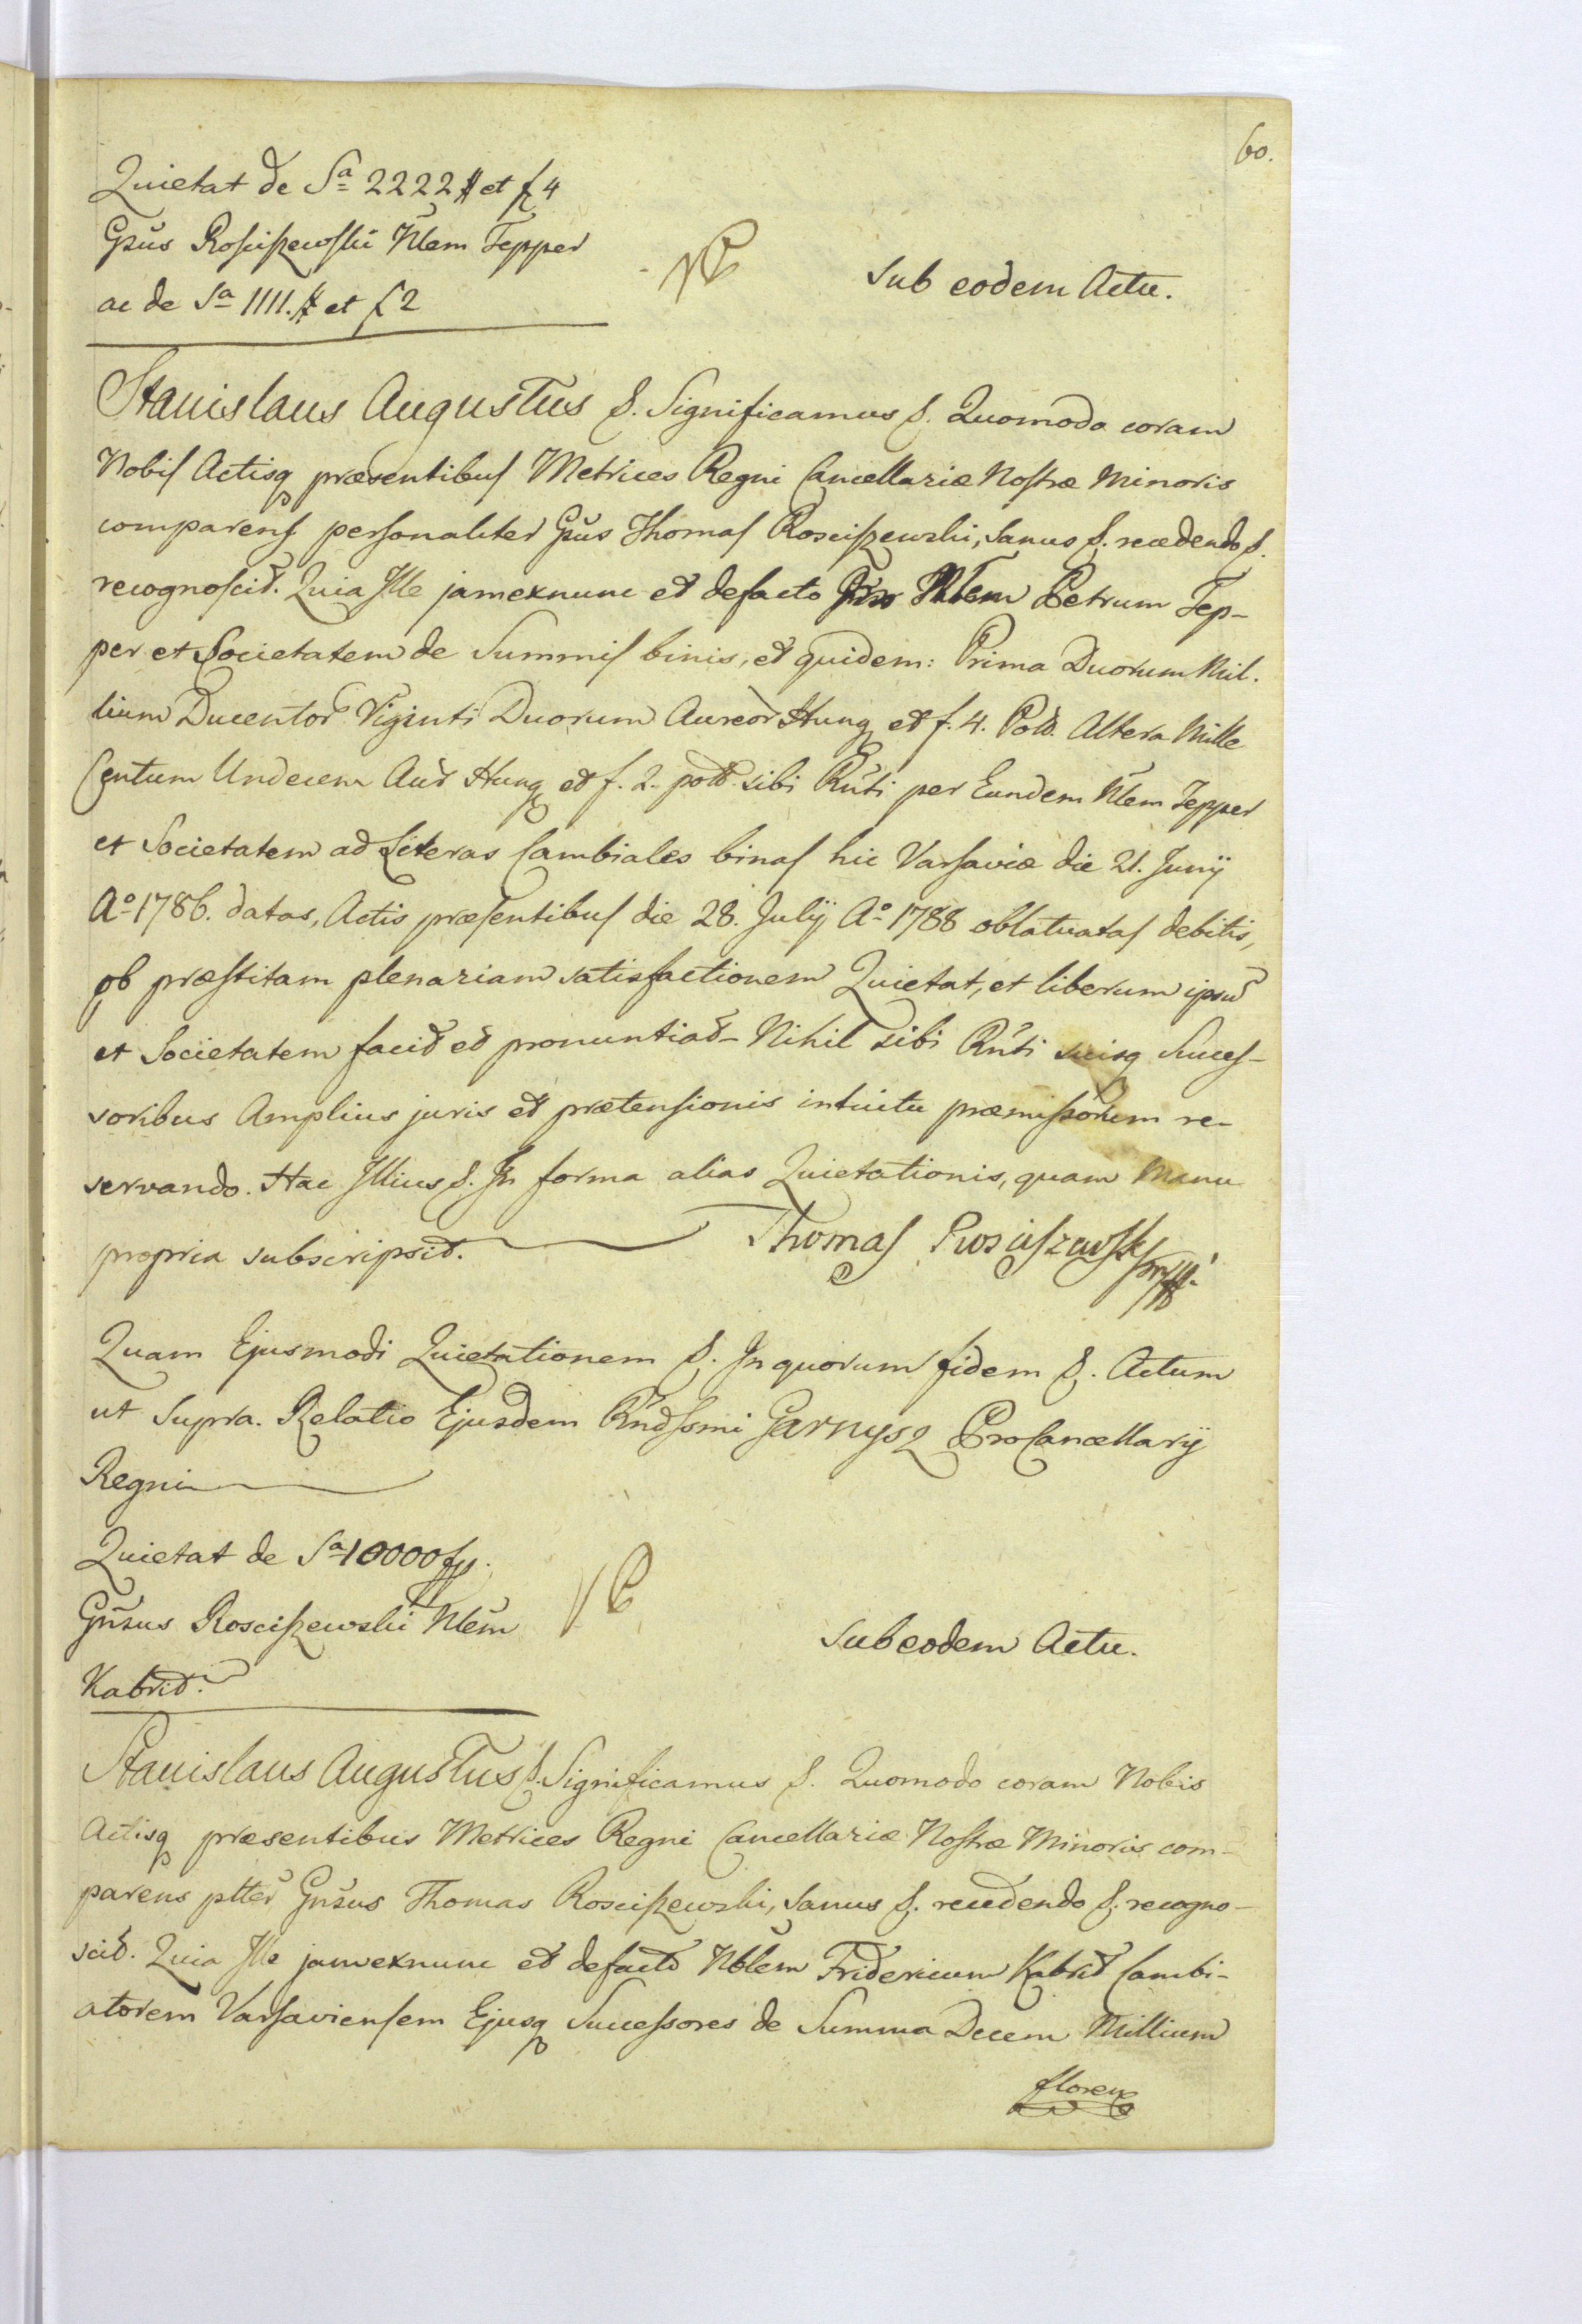 60.
Quietat de Sa 2222 # et f 4
Gsus Rosciszewski Nlem Tepper
ac de Sa 1111. # et f 2
Sub eodem Actu.
Stanislaus Augustus &. Significamus &. Quomodo coram
Nobis Actisq præsentibus Metrices Regni Cancellariæ Nostræ Minoris
comparens personaliter Gsus Thomas Rosciszewski, Sanus &. recedendo &.
recognoscit. Quia Ille jamexnunc et defacto Nlem Petrum Tep-
per et Societatem de Summis binis, et quidem: Prima Duorum Mil-
lium Ducentor Viginti Duorum Aureor Hung et f. 4. Poll. Altera Mille
Centum Undecem Aur Hung et f. 2. poll. sibi Rnti per Eundem Nlem Tepper
et Societatem ad Literas Cambiales binas hic Varsaviæ die 21. Junij
Ao 1786. datas, Actis præsentibus die 28. Julij Ao 1788 oblatuatas debitis,
ob præstitam plenariam satisfactionem Quietat, et liberum ipsu
et Societatem facit et pronuntiat- Nihil sibi Rnti suisq Succes-
soribus Amplius juris et prætensionis intuitu præmissorum re-
servando. Hac Illius &. In forma alias Quietationis, quam Manu
propria subscripsit. Thomas Rosciszewski mpp.
Quam Ejusmodi Quietationem &. In quorum fidem &. Actum
ut Supra. Relatio Ejusdem Rndssmi Garnysz ProCancellarij
Regni
Quietat de Sa 10000 fp.
Gnsus Rosciszewski Nlem
Kabrit.
Sub eodem Actu.
Stanislaus Augustus &. Significamus &. Quomodo coram Nobis
Actisq præsentibus Metrices Regni Cancellariæ Nostræ Minoris com-
parens plter Gnsus Thomas Rosciszewski, Sanus &. recedendo &. recogno-
scit. Quia Ille jamexnunc et defacto Nblem Fridericum Kabrit Cambi-
atorem Varsaviensem Ejusq Successores de Summa Decem Millium
floren